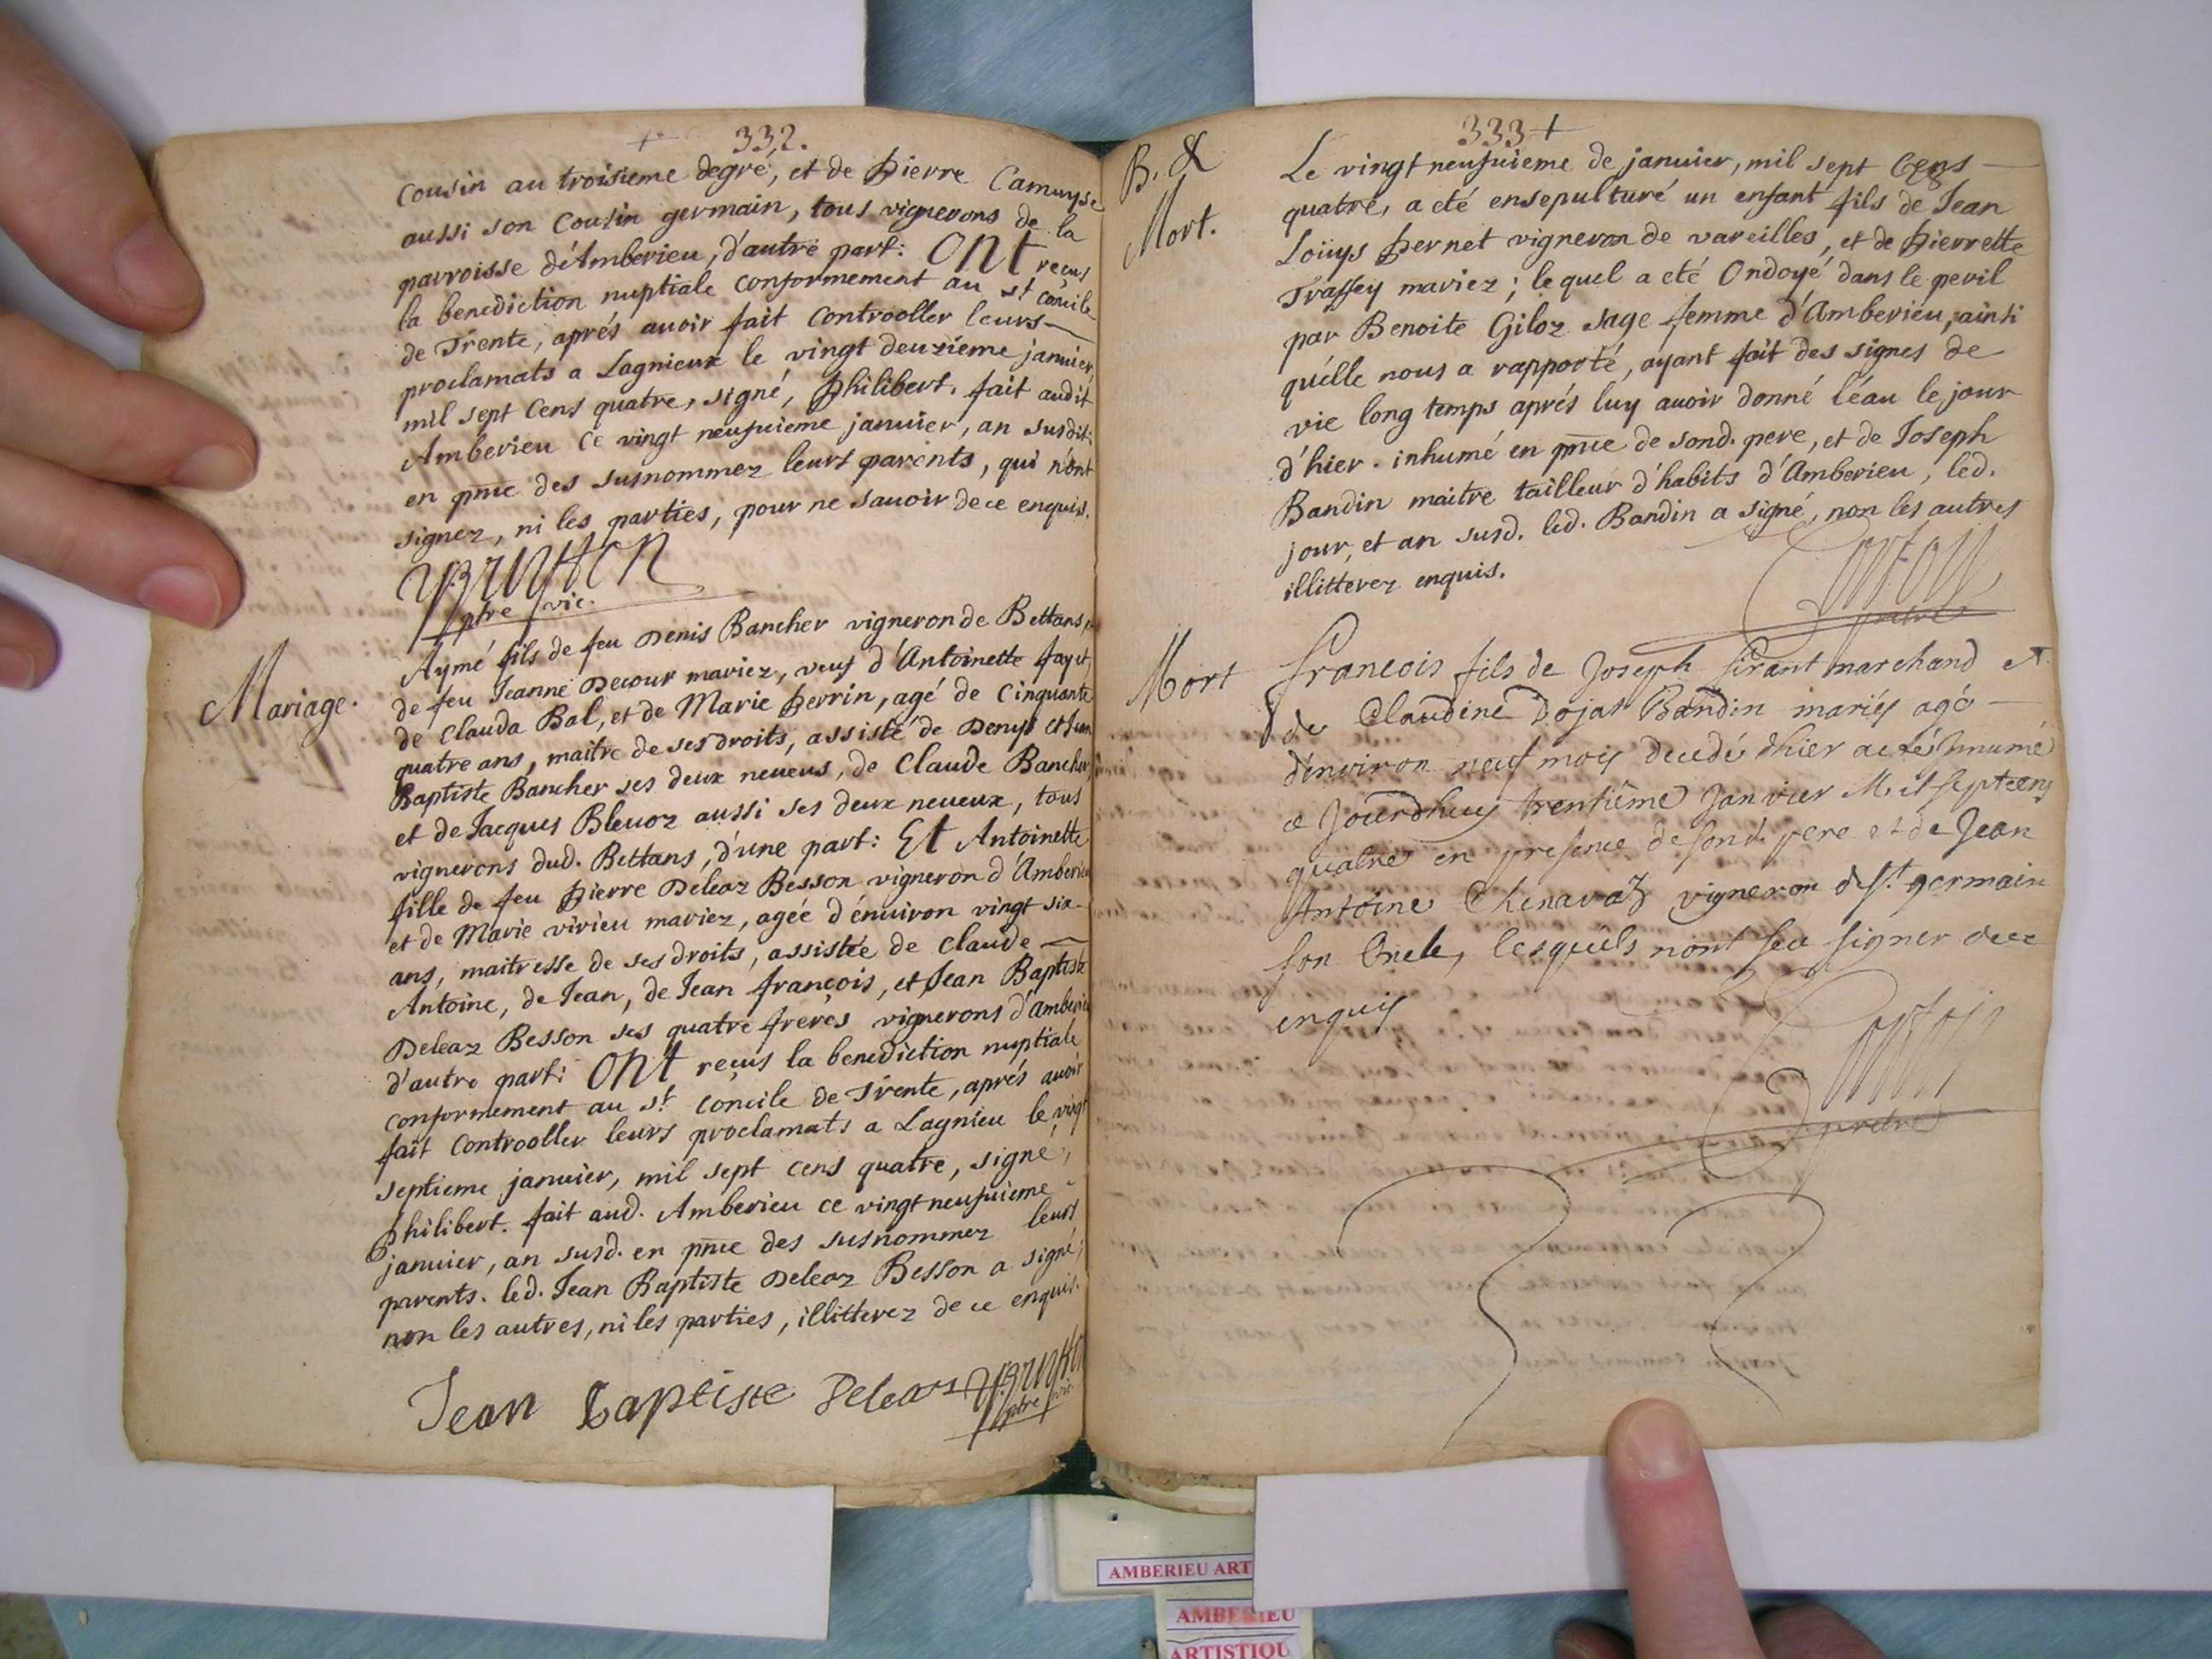 332.
cousin au troisieme degré, et de Pierre Camuyse
aussi son cousin germain, tous vignerons de la
parroisse d'Amberieu, d'autre part: Ont reçus
la benediction nuptiale conformement au st concile
de Trente, aprés auoir fait controoller leurs
proclamats a Lagnieux le vingt deuzieme januier,
mil sept cens quatre, signé, Philibert. fait audit
Amberieu ce vingt neufuieme januier, an susdit:
en pnce des susnommez leurs parents, qui n'ont
signez, ni les parties, pour ne sauoir de ce enquis.
ptre vic.
Mariage.
Aymé fils de feu Denis Bancher vigneron de Bettans,
de feu Jeanne Decour mariez, veuf d'Antoinette fayet,
de Clauda Bal, et de Marie Perrin, agé de cinquante
quatre ans, maitre de ses droits, assisté de Denys et Jean
Baptiste Bancher ses deux neueus, de Claude Bancher,
et de Jacques Bleuoz aussi ses deux neueux, tous
vignerons dud. Bettans, d'une part: Et Antoinette
fille de feu Pierre Deleaz Besson vigneron d'Amberieu
et de Marie virieu mariez, agée d'énuiron vingt six
ans, maitresse de ses droits, assistée de Claude
Antoine, de Jean, de Jean françois, et Jean Baptiste
Deleaz Besson ses quatre freres vignerons d'Amberieu
d'autre part: Ont reçus la benediction nuptiale
conformement au st. concile de Trente, aprés auoir
fait controoller leurs proclamats a Lagnieu le vingt
septieme januier, mil sept cens quatre, signé,
Philibert. fait aud. Amberieu ce vingt neufuieme
januier, an susd. en pnce des susnommez leurs
parents. led. Jean Baptiste Deleaz Besson a signé;
non les autres, ni les parties, illitterez de ce enquis.
Jean Baptiste Deleaz
ptre vic.
333 +
B. &
Mort.
Le vingt neufuieme de januier, mil sept cens
quatre, a eté ensepulturé un enfant fils de Jean
Loüys Pernet vigneron de vareilles, et de Pierrette
Traffey mariez; lequel a eté Ondoyé dans le peril
par Benoite Giloz sage femme d'Amberieu, ainsi
qu'élle nous a rapporté, ayant fait des signes de
vie long temps aprés luy auoir donné l'éau le jour
d'hier. inhumé en pnce de sond. pere, et de Joseph
Bandin maitre tailleur d'habits d'Amberieu, led.
jour, et an susd. led. Bandin a signé, non les autres
illitterez enquis.
prêtre
Mort
francois fils de Joseph sirant marchand et
de Claudine Dojat Bandin mariés agé
d'énviron neuf mois decedé dhier a eté Jnnumé
ce Jourdhuy trentiême Janvier Mil septcens
quatre en presence de sond. pere et de Jean
Antoine Chenavaz vigneron de st. germain
son Oncle, lesquels nont sçu signer dece
enquis
prêtre
AMBERIEU ART
AMBERIEU
ARTISTIQU